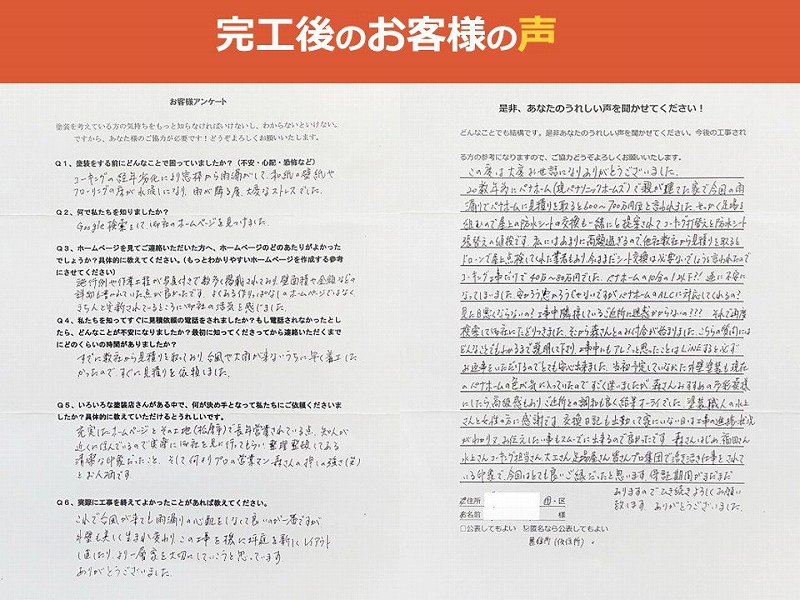 完工後のお客様の声
お客様アンケート
塗装を考えている方の気持ちをもっと知らなければいけないし、わからないといけない。
ですから、あなた様のご協力が必要です!どうぞよろしくお願いいたします。
Q1、塗装をする前にどんなことで困っていましたか?(不安・心配・恐怖など)
コーキングの経年劣化により窓枠から雨漏がして、和紙の壁紙や
フローリングの床が水浸しになり、雨が降る度、大変なストレスでした。
Q2、何で私たちを知りましたか?
Google検索をして、御社のホームページを見つけました。
Q3、ホームページを見てご連絡いただいた方へ、ホームページのどのあたりがよかった
でしょうか?具体的に教えてください。(もっとわかりやすいホームページを作成する参考
にさせてください)
施行例や作業工程が写真付きで数多く掲載されており、壁面積や金額などの
詳細も書かれていた点が良かったです。よくある作りっぱなしのホームページではなく
きちんと更新されているところに御社の活気を感じました。
Q4、私たちを知ってすぐに見積依頼の電話をされましたか?もし電話されなかったとし
たら、どんなことが不安になりましたか?最初に知ってくださってから連絡いただくまで
にどのくらいの時間がありましたか?
すでに数社から見積りを取っており、台風や大雨が来ないうちに早く着工した
かったので、すぐに見積りを依頼しました。
Q5、いろいろな塗装店さんがある中で、何が決め手となって私たちにご依頼くださいま
したか?具体的に教えていただけるとうれしいです。
充実したホームページとその土地(松原市)で長年営業されている点、知人が
近くに住んでいるので実際に御社を見に行ってもらい、整理整頓してある
清潔な印象だったこと、そして何よりプロの営業マン森さんの押しの強さ(笑)
とお人柄です。
Q6、実際に工事を終えてよかったことがあれば教えてください。
これで台風が来ても雨漏りの心配をしなくて良いのが一番ですが
外壁も美しく生まれ変わり、この工事を機に坪庭を新しくレイアウト
し直したり、より一層家を大切にしていこうと思っています。
ありがとうございました。
是非、あなたのうれしい声を聞かせてください!
どんなことでも結構です。是非あなたのうれしい声を聞かせてください。今後の工事され
る方の参考になりますので、ご協力どうぞよろしくお願いいたします。
この度は大変お世話になりありがとうございました。
20数年前にパナホーム(現パナソニックホームズ)で親が建てた家で今回の雨
漏りでパナホームに見積りを取ると600〜700万円位と言われました。せっかく足場を
組むので屋上の防水シートの交換も一緒にと提案されてコーキング打替えと防水シート
張替えの値段です。私にはあまりに高額過ぎるので他社数社から見積りを取ると
ドローンで屋上点検してくれた業者もあり、今はまだシート交換は必要ないでしょうと言われたので
コーキング工事だけで40万〜80万円でした。パナホームの10分の1以下!?逆に不安に
なってしまいました。安かろう悪かろうじゃないですがパナホームのALCに対応してくれるの?
見た目悪くならないの?工事中騒がしいとご近所に迷惑がかからないの???それで再度
検索して御社にたどりつきました。そこから森さんとのお付合が始まりました。こちらの質問には
どんなことでもわかるまで説明して下さり、工事中にもアレ?っと思ったことはLINEすると必ず
お返事をいただけるのでとても安心出来ました。当初予定していなかった外壁塗装も現在
のパナホームの色が気に入っていたのですごく迷いましたが、森さんおすすめの多彩模様
にしたら高級感もあり、ご近所との調和も良く結果オーライでした。塗装職人の水上
さんと女性の方に感謝です。交換日記も出勤して家にいない日は工事の進捗状況
がわかり、お伝えしたい事もスムーズに出来るので良かったです。森さんはじめ、福田さん
水上さん、コーキング担当さん、大工さん、足場屋さん、皆さんプロ集団で活き活き仕事をされて
いる印象で、今回はとても良いご縁だったと思います。保証期間がまだまだ
ありますのでひき続きよろしくお願い
致します。ありがとうございました。
ご住所 市・区
お名前 様
□公表してもよい ☑匿名なら公表してもよい